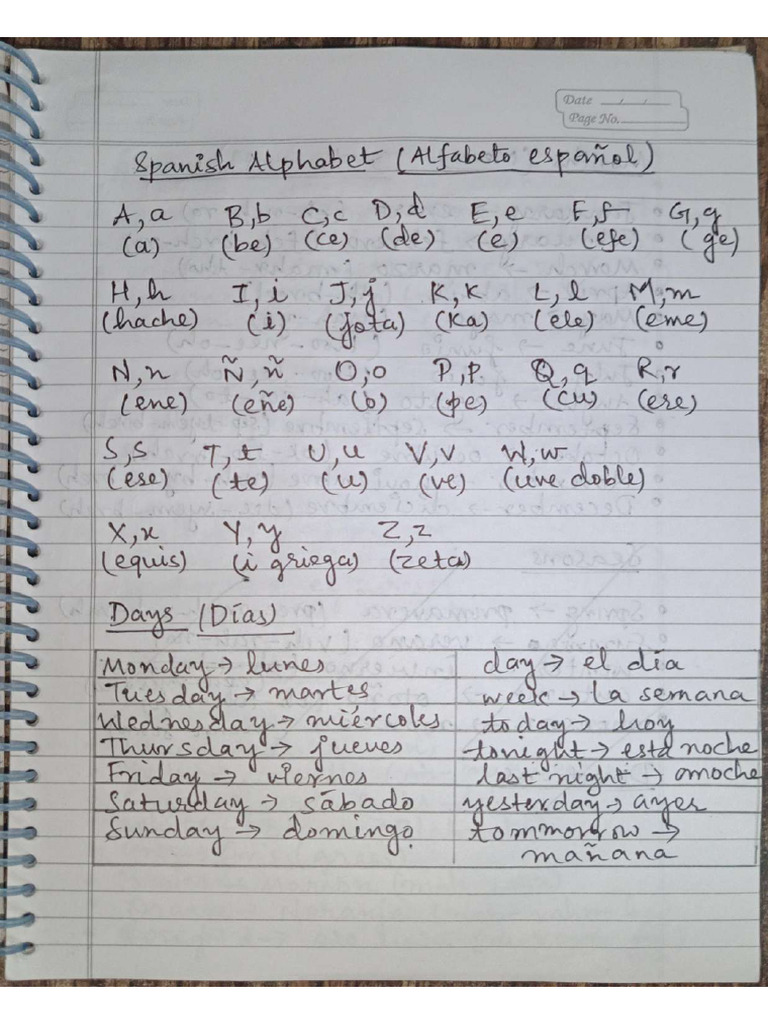 Date __/__/__
Page No.______
Spanish Alphabet (Alfabeto español)
A,a B,b C,c D,d E,e F,f G,g
(a) (be) (ce) (de) (e) (efe) (ge)
H,h I,i J,j K,k L,l M,m
(hache) (i) (jota) (ka) (ele) (eme)
N,n Ñ,ñ O,o P,p Q,q R,r
(ene) (eñe) (o) (pe) (cu) (ere)
S,s T,t U,u V,v W,w
(ese) (te) (u) (ve) (uve doble)
X,x Y,y Z,z
(equis) (i griega) (zeta)
Days (Días)
Monday → lunes day → el día
Tuesday → martes week → la semana
Wednesday → miércoles today → hoy
Thursday → jueves tonight → esta noche
Friday → viernes last night → anoche
Saturday → sábado yesterday → ayer
Sunday → domingo. tommorrow →
mañana